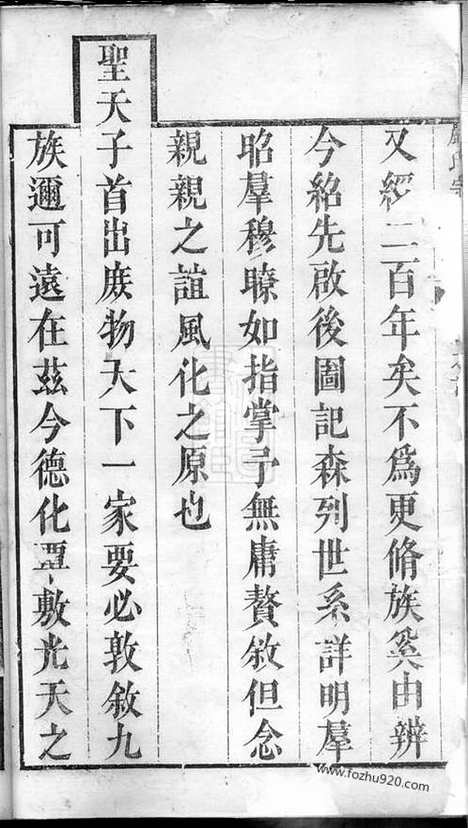 又經二百年矣不為更脩族奚由辨
今紹先啟後圖記森列世系詳明羣
昭羣穆瞭如指掌予無庸贅敘但念
親親之誼風化之原也
聖天子首出庶物天下一家要必敦敘九
族邇可遠在茲今德化覃敷光天之
www.fozhu920.com